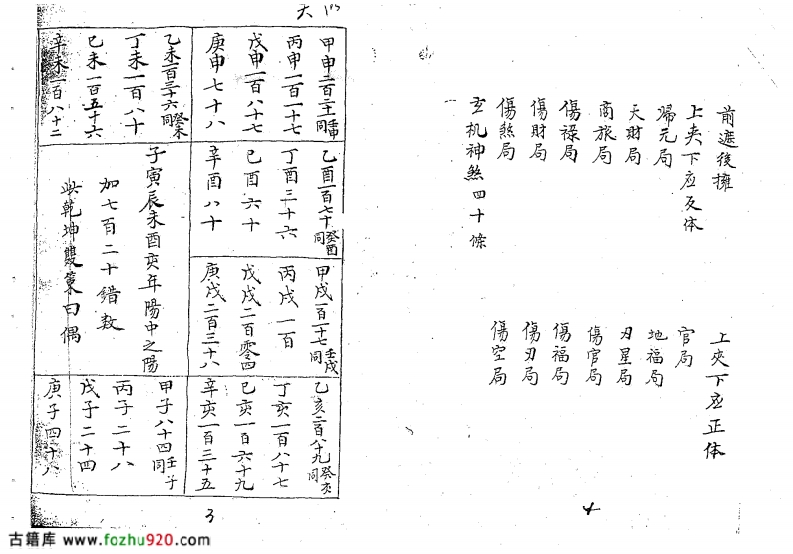 前遮後擁
上夾下应正体
上夾下应反体
官局
歸元局
地福局
天財局
刃星局
商旅局
傷官局
傷祿局
傷福局
傷財局
傷刃局
傷煞局
傷空局
玄机神煞四十條
4
天
丙申一百一十七
戊申一百八十七
庚申七十八
乙酉一百七十癸酉同
丁酉三十六
己酉六十
辛酉八十
甲戌一百一十七壬戌同
丙戌一百
戊戌二百零四
庚戌二百三十八
乙亥二百八十九癸亥同
丁亥一百八十七
己亥一百六十九
辛亥一百三十五
乙未一百三十六癸未同
丁未一百八十
己未一百五十六
辛未一百八十二
子寅辰未酉亥年陽中之陽
加七百二十錯数
與乾坤雙策曰偶
甲子八十四壬子同
丙子二十八
戊子二十四
庚子四十八
3
古籍库 www.fozhu920.com